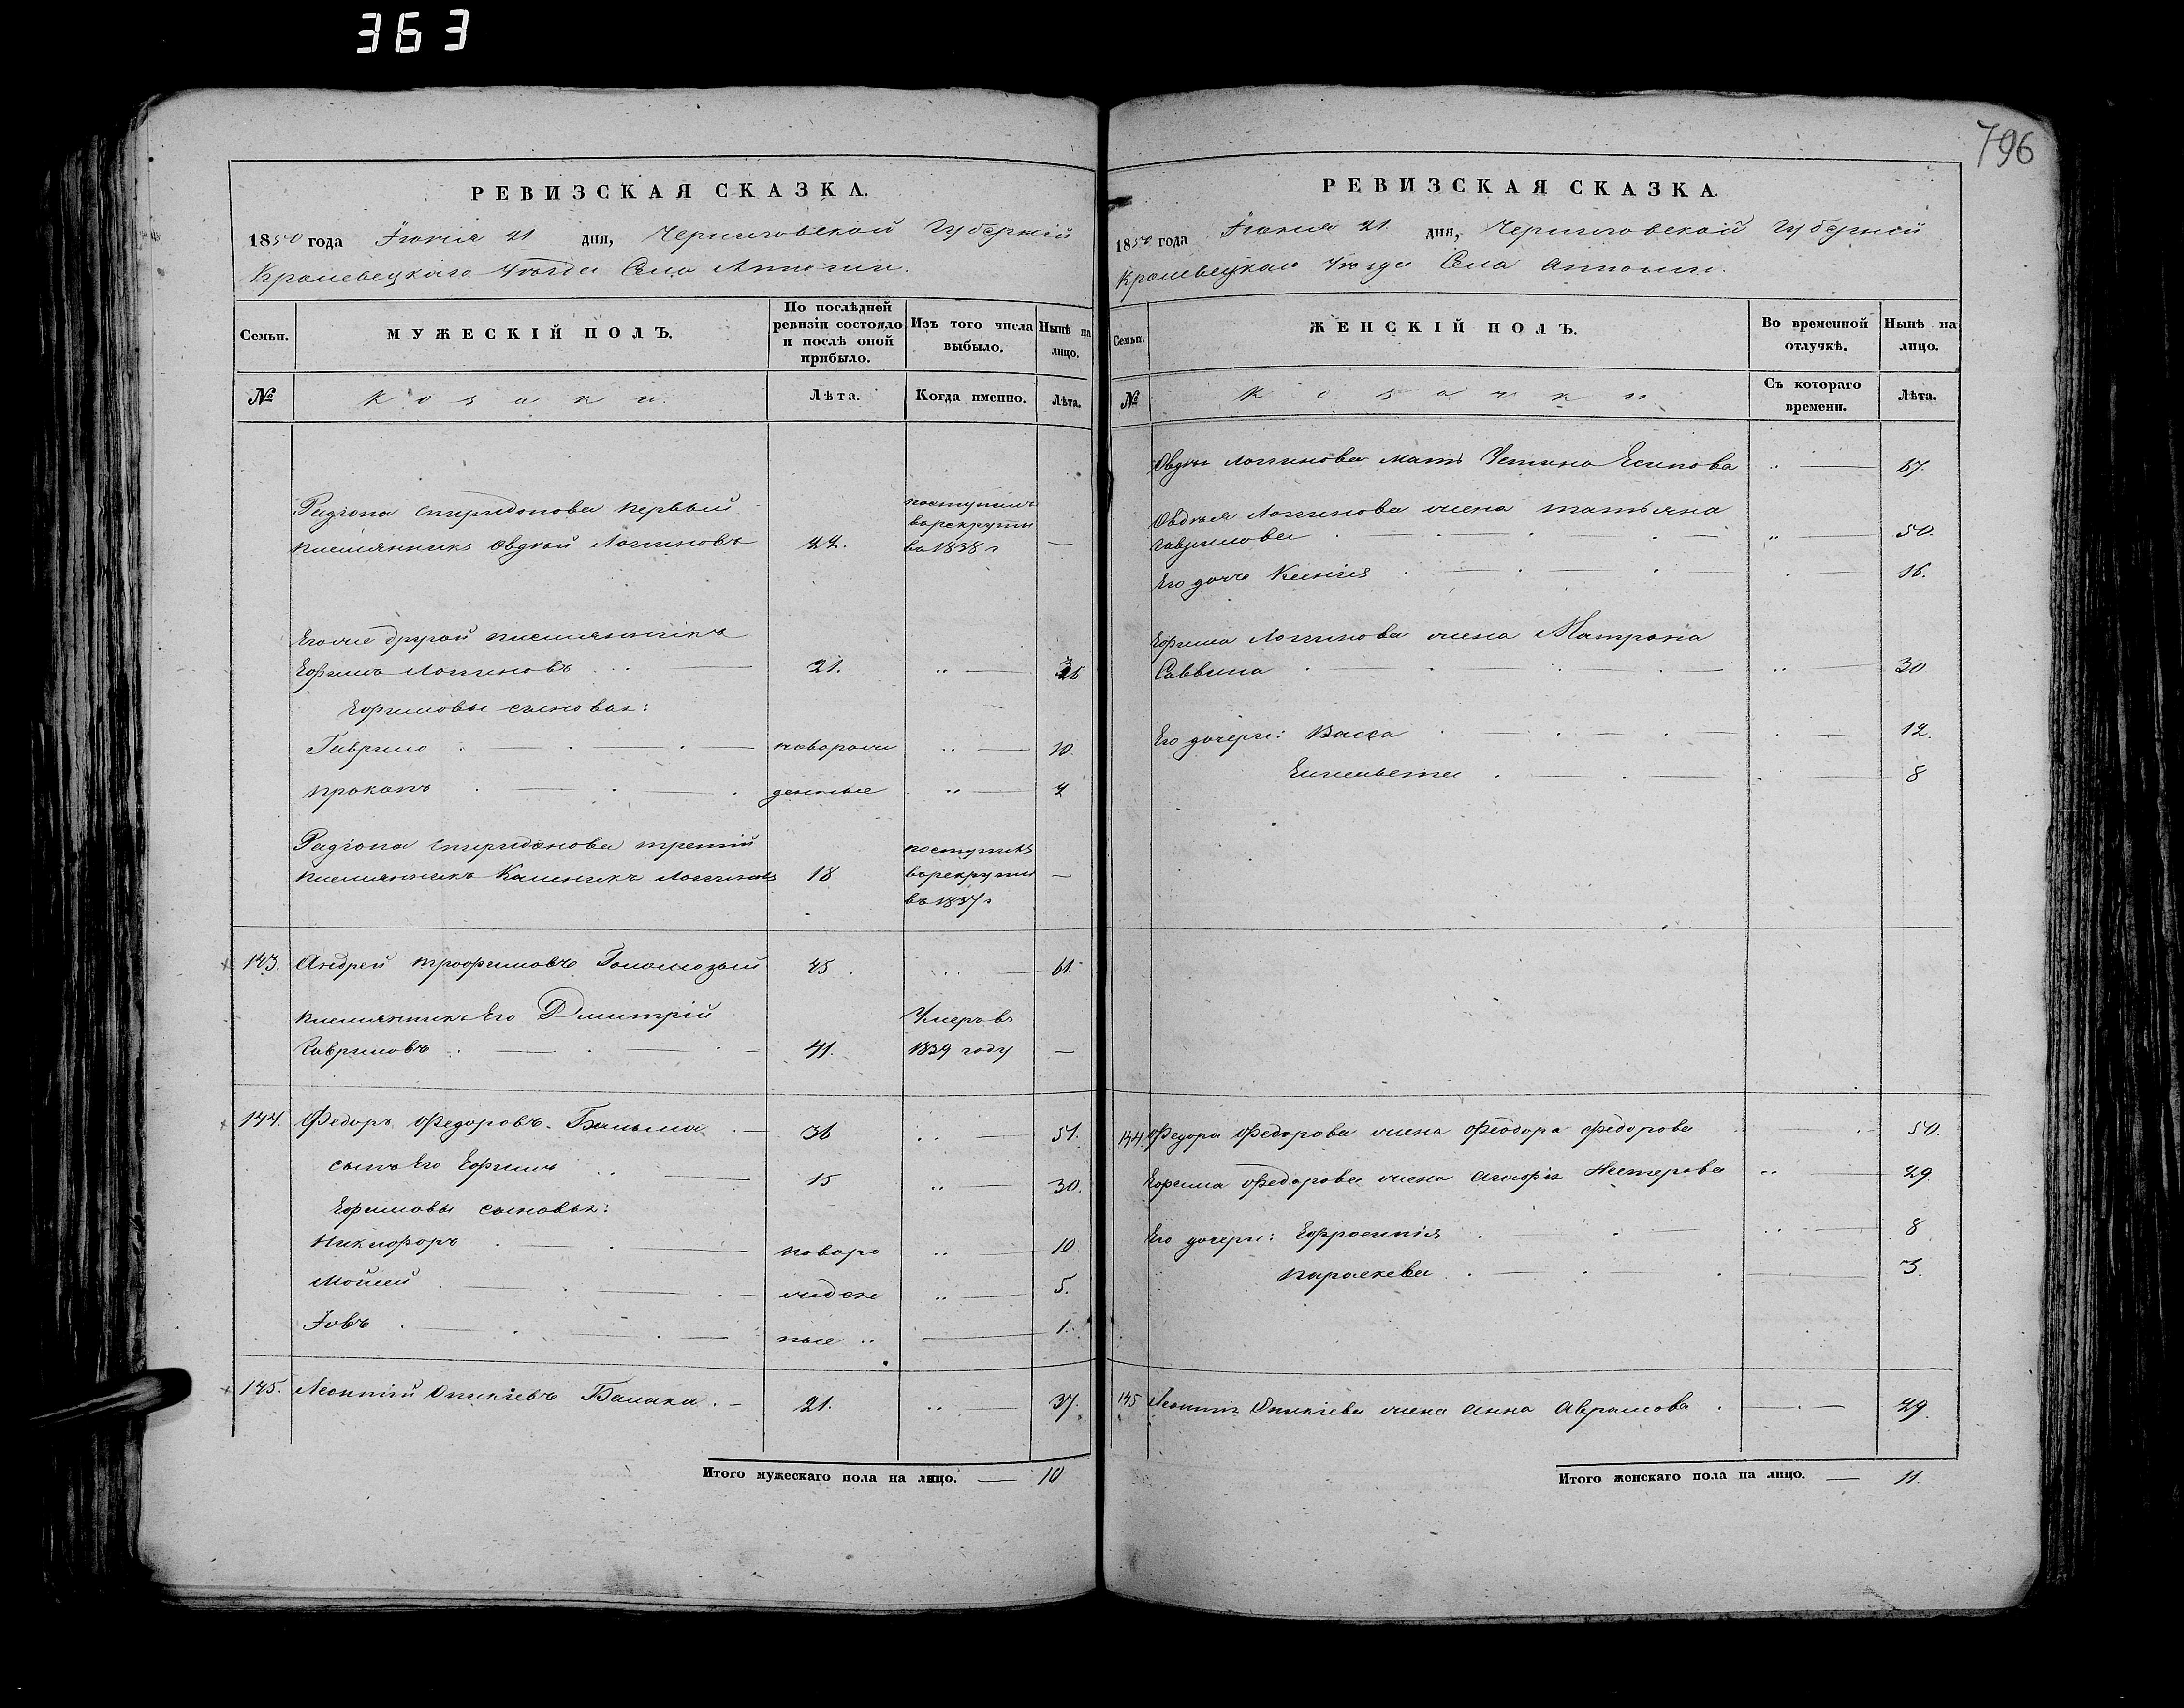 363
796
РЕВИЗСКАЯ СКАЗКА.
1850 года Іюня 21 дня, Черниговской Губерніи
Кролевецкаго Уѣзда Села
МУЖЕСКІЙ ПОЛЪ.
Семьи.
По послѣдней ревизіи состояло и послѣ оной прибыло.
Изъ того числа выбыло.
Нынѣ на лицо.
№
Козаки
Лѣта.
Когда именно.
Лѣта.
Радіона Спиридонова первый
племянникъ Овдѣй Логиновъ 44. поступилъ в рекруты во 1838 г —
Его же другой племянникъ
Ефимъ Логиновъ 21. „ —
Ефимовы сыновья:
Гаврило новорож „ — 10.
Прокопъ денные „ —
Радіона Спиридонова третій
племянникъ Каленикъ Логиновъ 18 поступилъ в рекруты въ 1837 г —
143. Андрей Трофимовъ Голомозый 45 . . — 61.
племянникъ Его Дмитрій
Гавриловъ 41. Умеръ въ 1839 году —
144. Федоръ Федоровъ 36 . . — 51.
сынъ Его Ефимъ 15 „ — 30.
Ефимовы сыновья:
Никифоръ новоро „ — 10
Мойсей жден „ — 5.
Іовъ ные „ — 1.
145. Леонтій Оникіевъ Балака 21. „ — 37.
Итого мужескаго пола на лицо. — 10
РЕВИЗСКАЯ СКАЗКА.
1850 года Іюня 21 дня, Черниговской Губерніи
Кролевецкаго Уѣзда Села
Семьи.
ЖЕНСКІЙ ПОЛЪ.
Во временной отлучкѣ.
Нынѣ на лицо.
№
Козачки
Съ котораго времени.
Лѣта.
Овдѣя Логинова мать Устина Есипова „ — 67.
Овдѣя Логинова жена Татьяна
Гаврилова „ — 50.
Его дочь Ксенія — 16.
Ефима Логинова жена Матрона
Саввина „ — 30
Его дочери: Васса — 12.
Елисавета — 8
144. Федора Федорова жена Феодора Федорова — 50.
Ефима Федорова жена Агафія Нестерова „ — 29
Его дочери: Ефросинія — 8
Параскева — 3.
145 Леонтія Оникіева жена Анна Аврамова — 29.
Итого женскаго пола на лицо. — 11.